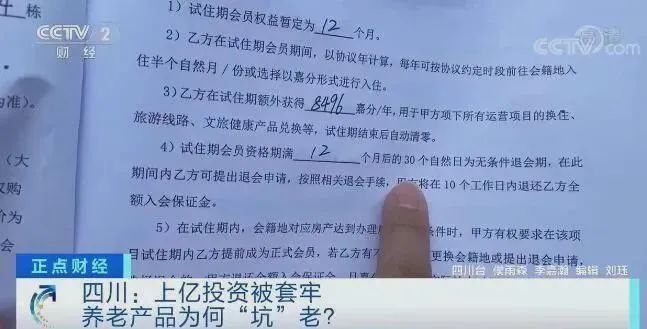 CCTV 2
财经
CCTV.com
栋
1）试住期会员权益暂定为 12 个月。
2）乙方在试住期会员期间，以协议年计算，每年可按协议约定时段前往会籍地入
住半个自然月／份或选择以嘉分形式进行入住。
为准）。
3）乙方在试住期额外获得 8496 嘉分/年，用于甲方项下所有运营项目的换住、
旅游线路、文旅健康产品兑换等，试住期结束后自动清零。
4）试住期会员资格期满 12 个月后的 30 个自然日为无条件退会期，在此
（大
期间内乙方可提出退会申请，按照相关退会手续，甲方将在 10 个工作日内退还乙方全
议购
额入会保证金。
价为
5）在试住期内，会籍地对应房产达到办理 条件时，甲方有权要求在该项
目试住期内乙方提前成为正式会员，若乙方有不 更换会籍地或提出退会申请，
正点财经
四川台 侯雨森 李嘉瀚 编辑 刘珏
四川：上亿投资被套牢
养老产品为何“坑”老？